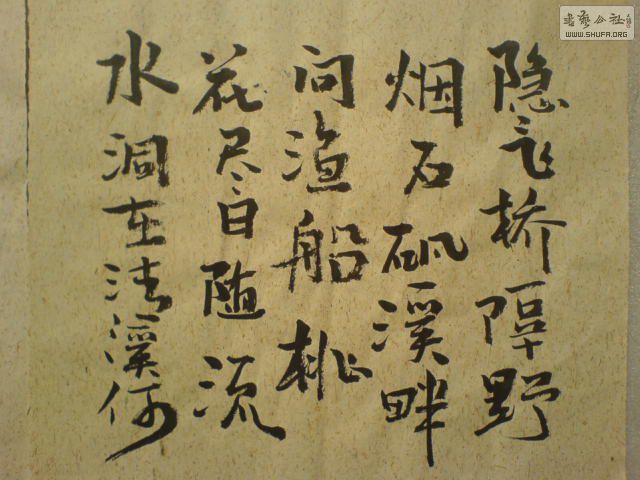 隐飞桥隔野
烟石矶溪畔
问渔船桃
花尽日随流
水洞在清溪何
書藝公社
WWW.SHUFA.ORG